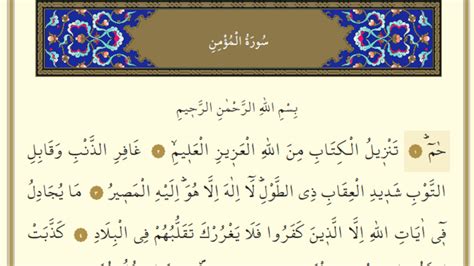 سُورَةُ الْمُؤْمِنِ
بِسْمِ اللهِ الرَّحْمٰنِ الرَّحٖيمِ
حٰمٓ ۚ ﴿١﴾ تَنْزٖيلُ الْكِتَابِ مِنَ اللهِ الْعَزٖيزِ الْعَلٖيمِ ۙ ﴿٢﴾ غَافِرِ الذَّنْبِ وَقَابِلِ
التَّوْبِ شَدٖيدِ الْعِقَابِ ذِى الطَّوْلِ ؕ لَٓا اِلٰهَ اِلَّا هُوَ ؕ اِلَيْهِ الْمَصٖيرُ ﴿٣﴾ مَا يُجَادِلُ
فٖٓى اٰيَاتِ اللهِ اِلَّا الَّذٖينَ كَفَرُوا فَلَا يَغْرُرْكَ تَقَلُّبُهُمْ فِى الْبِلَادِ ﴿٤﴾ كَذَّبَتْ